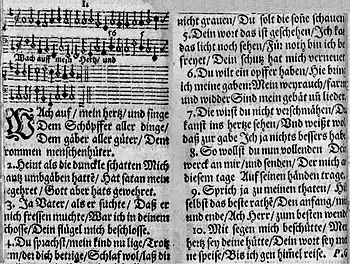 I.
56
Wach auff mein Hertz/ und
WAch auf/ mein hertz/ und singe
Dem Schöpffer aller dinge/
Dem gäber aller güter/ Dem
frommen menschenhüter.
2. Heint als die dunckle schatten Mich
gantz umbgäben hattē/ Hat satan mein
begehret/ Gott aber hats gewehret.
3. Ja Vater/ als er suchte/ Daß er
mich fressen mochte/ War ich in deinem
schosse/ Dein flügel mich beschlosse.
4. Du sprachst/ mein kind nu lige/ Trotz
dem/ der dich betrüge/ Schlaf wol/ laß dir
nicht grauen/ Du solt die soñe schauen
5. Dein wort das ist geschehen/ Ich kan
das licht noch sehen/ Für noht bin ich be-
freyet/ Dein schutz hat mich verneuet
6. Du wilt ein opffer haben/ Hie bring
ich meine gaben: Mein weyrauch/ farr
und widder Sind mein gebät uñ lieder.
7. Die wirst du nicht verschmähen/ Du
kanst ins hertze sehen/ Und weißt wol
daß zur gabe Ich ja nichts bessers habe
8. So wollst du nun vollenden Dein
werck an mir/ und senden/ Der mich an
diesem tage Auf seinen händen trage.
9. Sprich ja zu meinen thaten/ Hilf
selbst das beste rathē/ Den anfang/ mittl
und ende/ Ach Herr/ zum besten wende
10. Mit segen mich beschütte/ Mein
hertz sey deine hütte/ Dein wort sey mei-
ne speise/ Bis ich gen himel reise. P. G